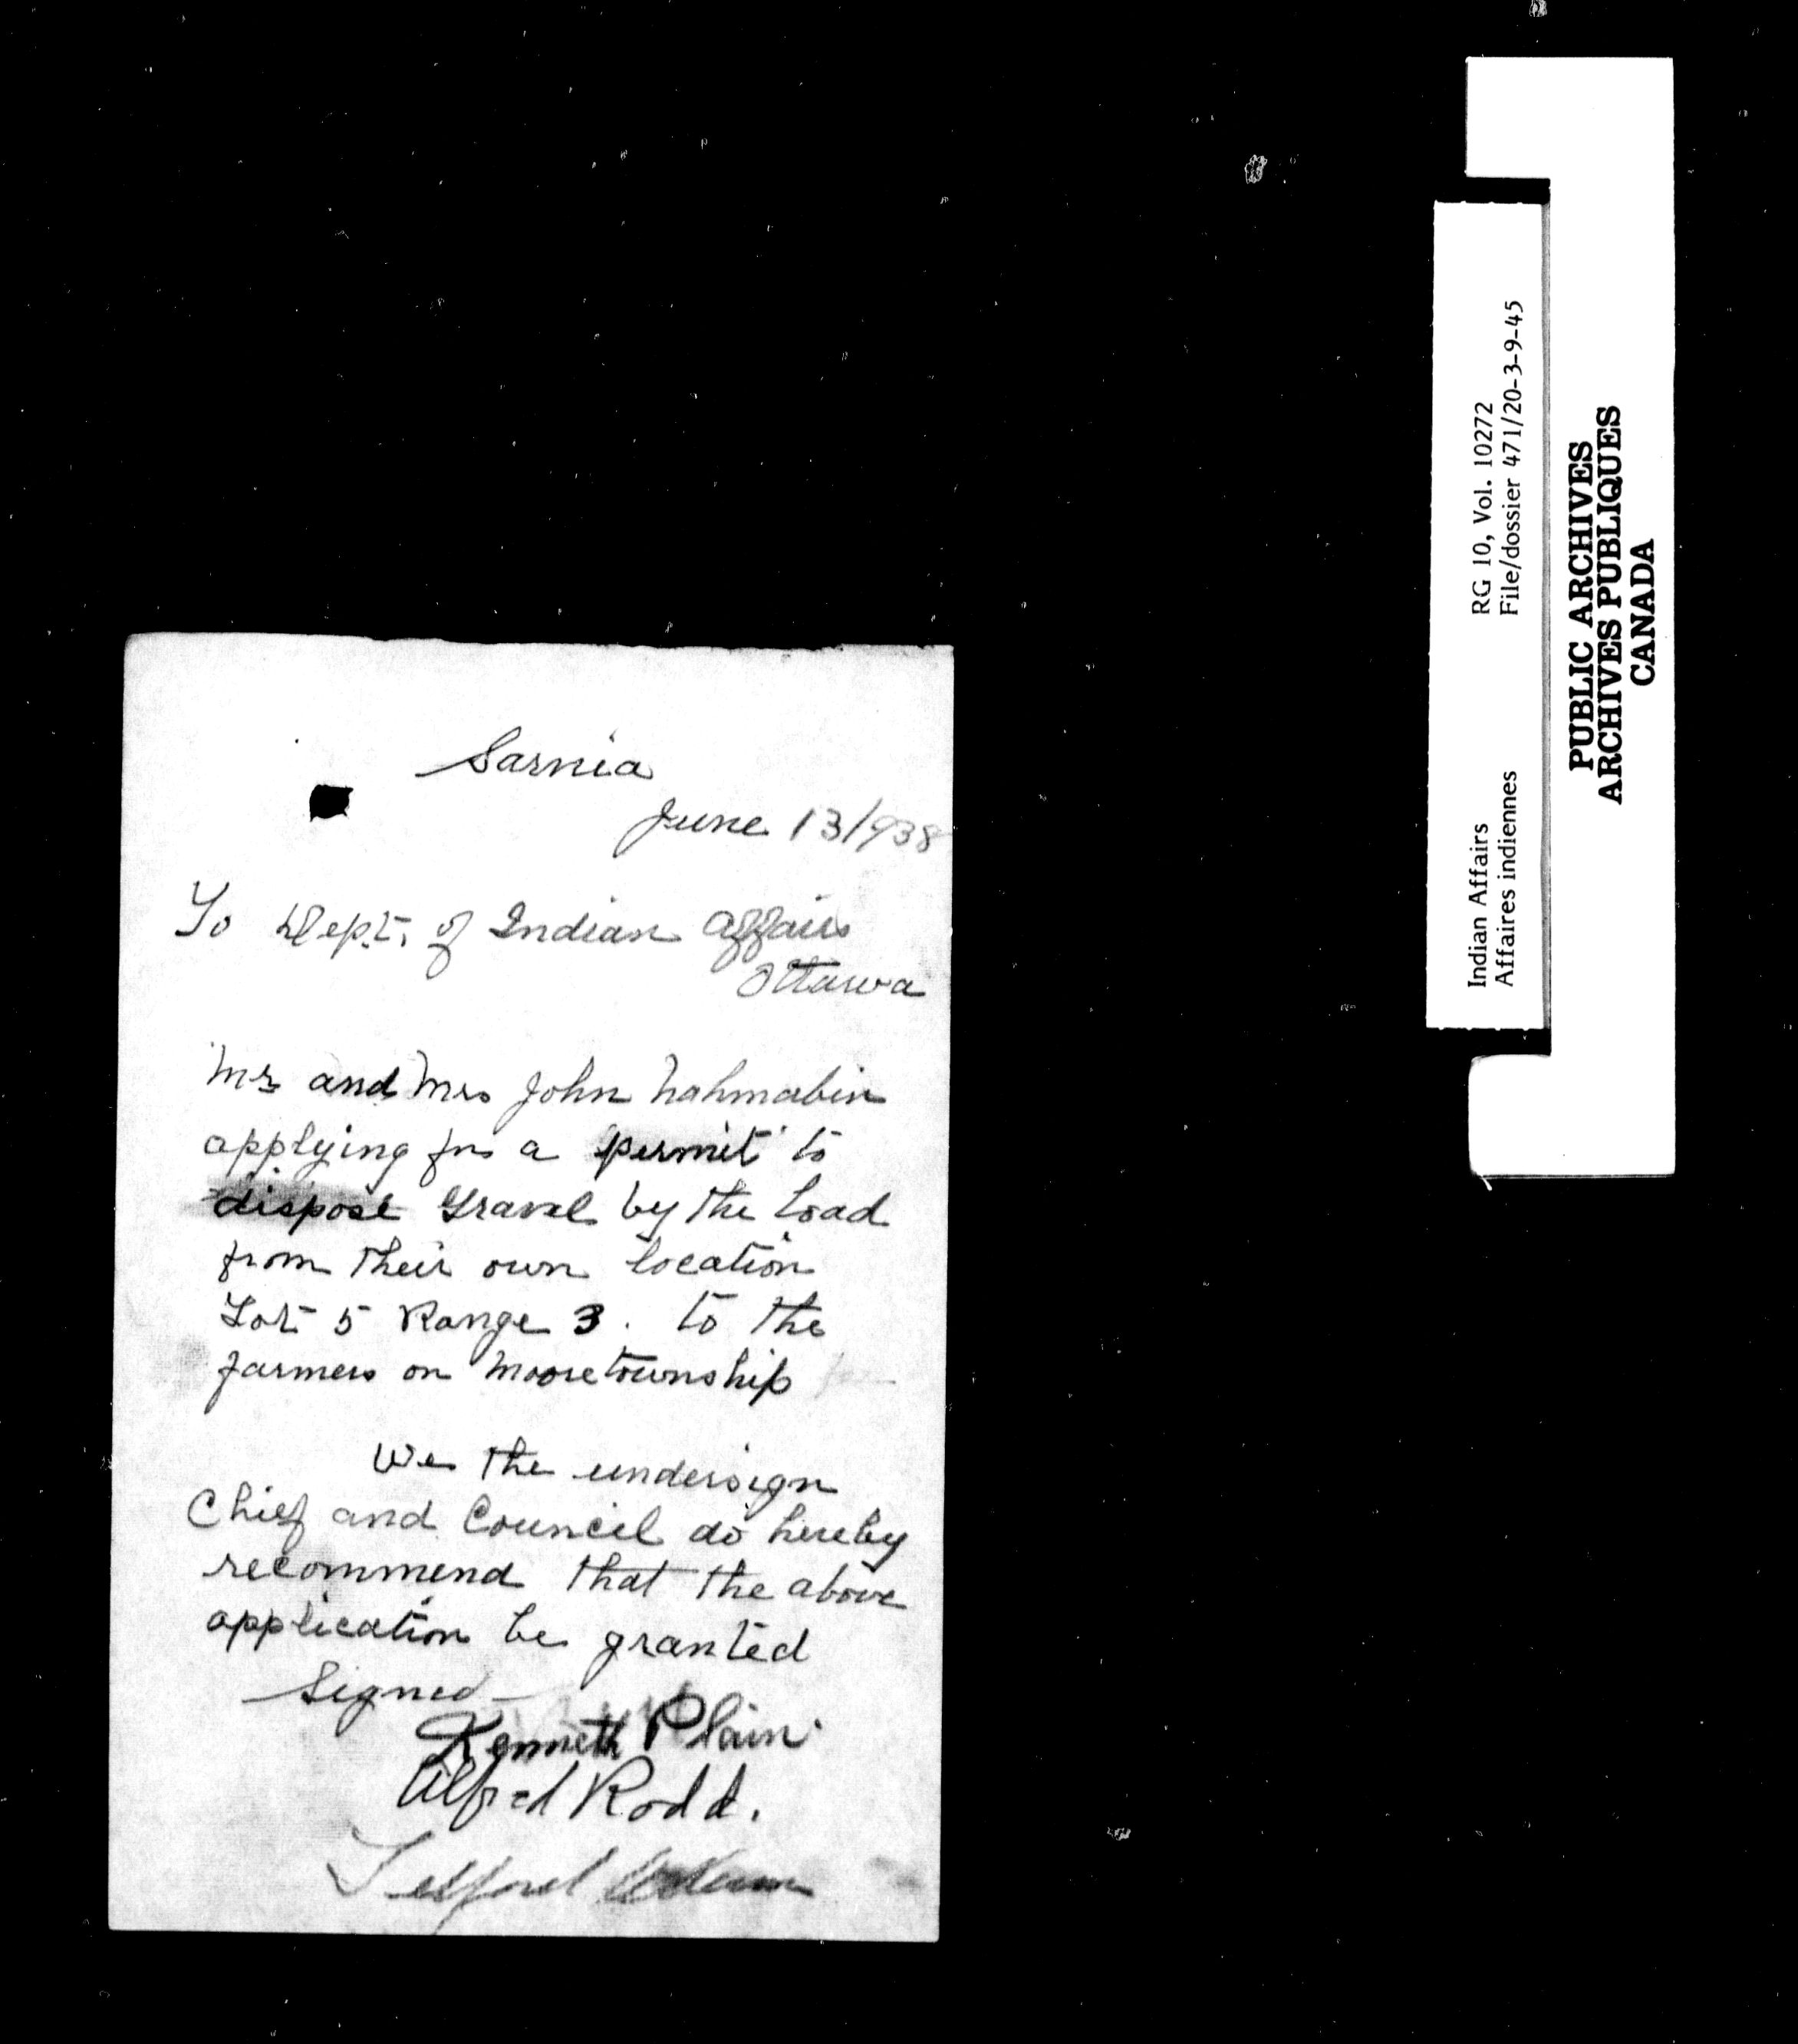 Sarnia
June 13/938
To Dept. of Indian Affairs
Ottawa
Mr and Mrs John Nahmabin
applying for a permit to
dispose Gravel by the Load
from their own location
Lot 5 Range 3. to the
farmers on Moore township
We the undersign
Chief and Council do hereby
recommend that the above
application be granted
Signed
Kenneth Plain
Alfred Rodd.
Telford
Indian Affairs RG 10, Vol. 10272
Affaires indiennes File/dossier 471/20-3-9-45
PUBLIC ARCHIVES
ARCHIVES PUBLIQUES
CANADA